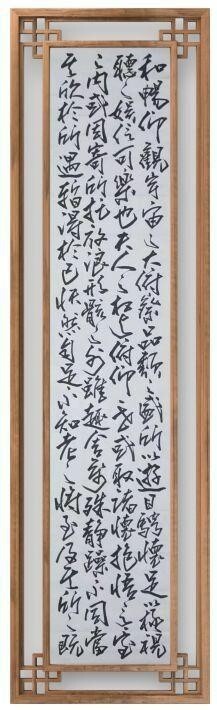 和暢仰觀宇宙之大俯察品類之盛所以遊目騁懷足以極視
聽之娛信可樂也夫人之相與俯仰一世或取諸懷抱悟言一室
之內或因寄所托放浪形骸之外雖趣舍萬殊靜躁不同當
其欣於所遇暫得於己快然自足不知老之將至及其所既